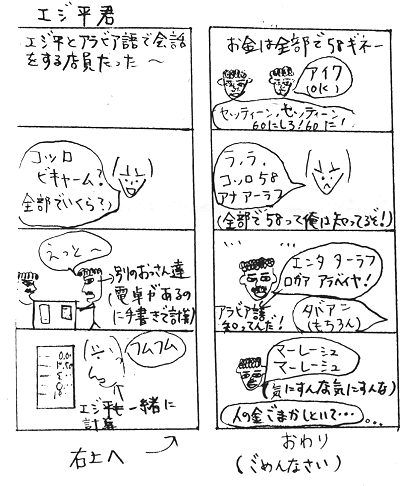 エジ平君
エジ平とアラビア語で会話
をする店員だった〜
コッロ
ビキャーム?
全部でいくら?
えっと〜
別のおっさん達
(電卓があるの
に手書きで計算)
フムフム
エジ平も一緒に
計算
右上へ
お金は全部で58ギネー
アイワ
(OK)
セッティーン、セッティーン
60にしろ!60だ!
ラ、ラ、
コッロ58
アナ アーラフ
(全部で58って俺は知ってるぞ!)
エンタ ターラフ
ロガァ アラベイヤ!
アラビア語
知ってんだ!
タバアン
(もちろん)
マーレーシュ
マーレーシュ
(気にすんな気にすんな)
人の金ごまかしといて・・・
おわり
(ごめんなさい)